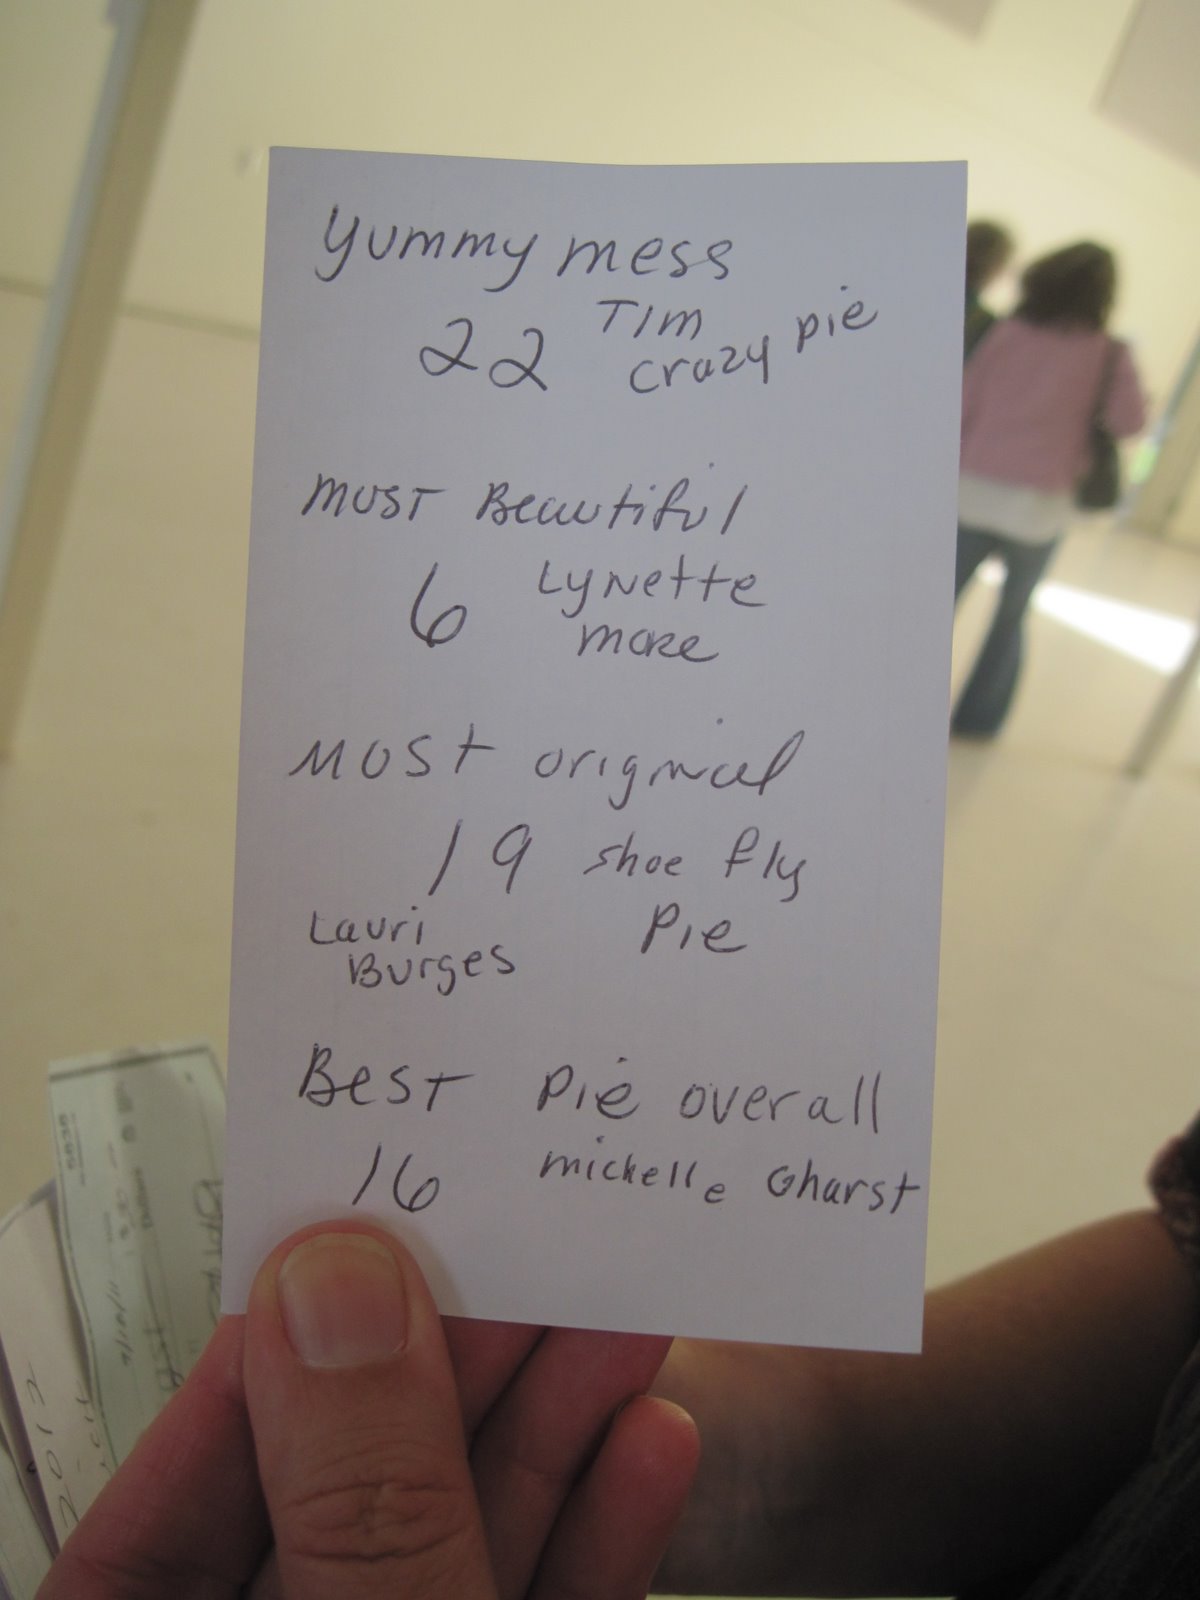 yummy mess
22 Tim
crazy pie
most Beautiful
6 Lynette
more
Most original
19 shoe fly
Pie
Lauri
Burges
Best Pie overall
16 michelle Gharst
2012